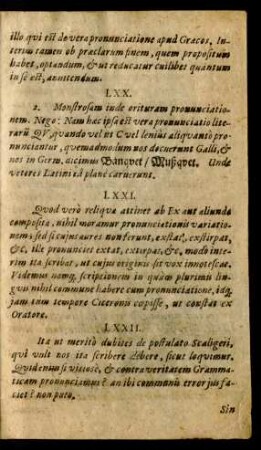 illo qui est de vera pronunciatione apud Græcos. In-
terim tamen ob præclarum finem, quem propositum
habet, optandum, & ut reducatur cuilibet quantum
in se est, annitendum.
LXX.
2. Monstrosam inde orituram pronunciatio-
nem. Nego: Nam hæc ipsa est vera pronunciatio lite-
rarũ QV, quando vel ut C vel lenius aliquantò pro-
nunciantur, quemadmodum nos docuerunt Galli, &
nos in Germ. dicimus Banquet/ Mußquet. Unde
veteres Latini eâ planè caruerunt.
LXXI.
Quod verò reliqua attinet ab Ex aut aliunde
composita, nihil moramur pronunciationis variatio-
nem; sed si cujus aures non ferunt, exstat, exstirpat,
&c, ille pronunciet extat, extirpat, &c, modò inte-
rim ita scribat, ut cujus originis sit vox innotescat.
Videmus namq; scriptionem in quàm plurimis lin-
guis nihil commune habere cum pronunciatione, idq;
jam tum tempore Ciceronis cœpisse, ut constat ex
Oratore.
LXXII.
Ita ut meritò dubites de postulato Scaligeri,
qui vult nos ita scribere debere, sicut loquimur.
Quid enim si vitiosè, & contra veritatem Gramma-
ticam pronunciamus? an ibi communis error jus fa-
ciet? non puto.
Sin